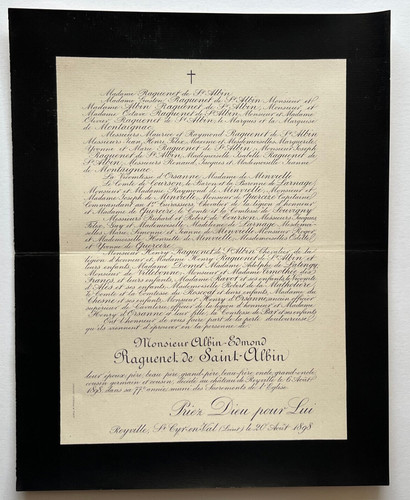 Madame Raguenet de St Albin
Madame Gaston Raguenet de St Albin, Monsieur et
Madame Albin Raguenet de St Albin, Monsieur et
Madame Octave Raguenet de St Albin, Monsieur et Madame
Olivier Raguenet de St Albin, le Marquis et la Marquise
de Montaignac
Messieurs Maurice et Raymond Raguenet de St Albin
Messieurs Jean, Henri, Mesdemoiselles Marguerite
Yvonne et Marie Raguenet de St Albin, Monsieur Joseph
Raguenet de St Albin, Mademoiselle Isabelle Raguenet de
St Albin, Messieurs Renaud, Jacques et Mademoiselle Jeanne
de Montaignac
La Vicomtesse d'Orsanne, Madame de Minvielle
Le Comte de Courson, le Baron et la Baronne de Larnage
Monsieur et Madame Raymond de Minvielle, Monsieur et
Madame Joseph de Minvielle, Monsieur de Capitaine
Commandant au 1er Cuirassiers, Chevalier de la légion d'honneur
et Madame de le Comte et la Comtesse de
Messieurs Richard et Robert de Courson, Messieurs Jacques
Guy et Mademoiselle Madeleine de Larnage,
Simonne et de Minvielle, Monsieur Roger
et Mademoiselle Henriette de Minvielle, Mesdemoiselles
et Yvonne de
Monsieur Henry Raguenet de St Albin, Chevalier de la
légion d'honneur et Madame Henry Raguenet de St Albin et
leurs enfants, Madame Lionel
Monsieur de Villebonne, Monsieur et Madame Timothée des
Francs et leurs enfants, Madame
et ses enfants, Mademoiselle Robert de la
le Comte et la Comtesse de et leurs enfants, Madame du
Chesne et ses enfants, Monsieur Henry d'Orsanne, ancien officier
supérieur de Cavalerie, officier de la légion d'honneur et Madame
Henry d'Orsanne et leur fille, la Comtesse de Bar et ses enfants
Ont l'honneur de vous faire part de la perte douloureuse
qu'ils viennent d'éprouver en la personne de
Monsieur Albin-Edmond
Raguenet de Saint-Albin
leur époux, père, beau-père, grand-père, beau-frère, oncle, grand-oncle,
cousin-germain et cousin, décédé au château de Reyville le 6 Août
1898, dans sa 77e année, muni des Sacrements de l'Eglise.
Priez Dieu pour Lui
Reyville, St Cyr-en-Val (Loiret) le 20 Août 1898